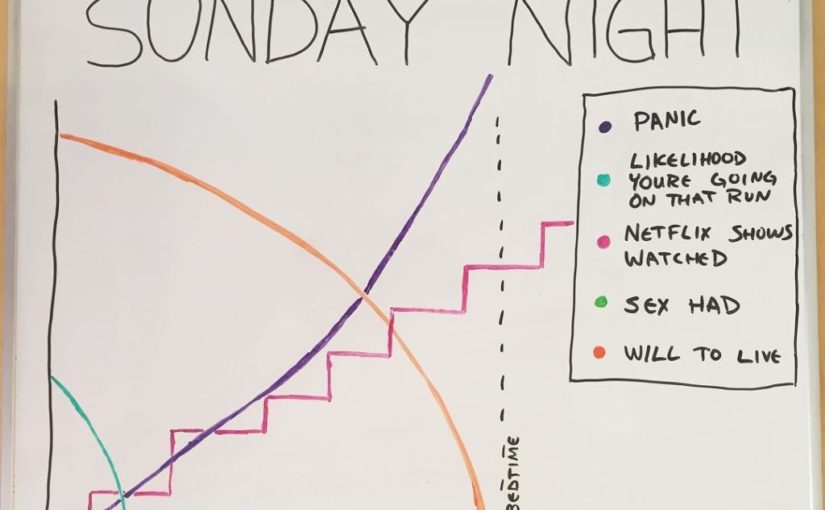 SUNDAY NIGHT
PANIC
LIKELIHOOD
YOURE GOING
ON THAT RUN
NETFLIX SHOWS
WATCHED
SEX HAD
WILL TO LIVE
BEDTIME